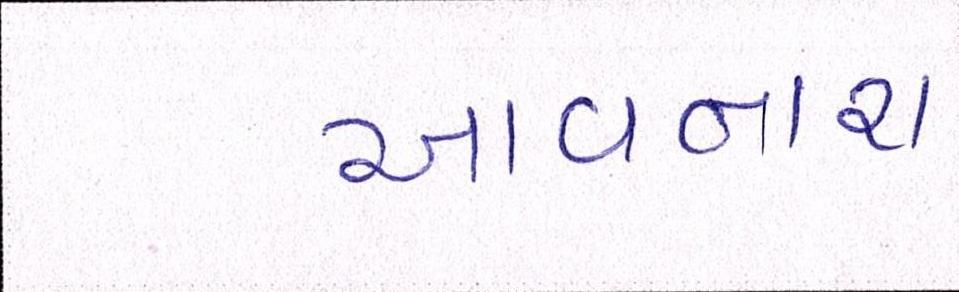 આવનારા